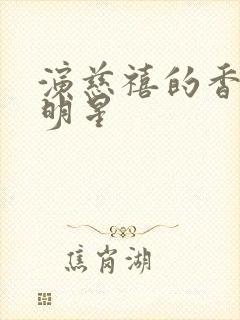 演慈禧的香
明星
焦岗湖